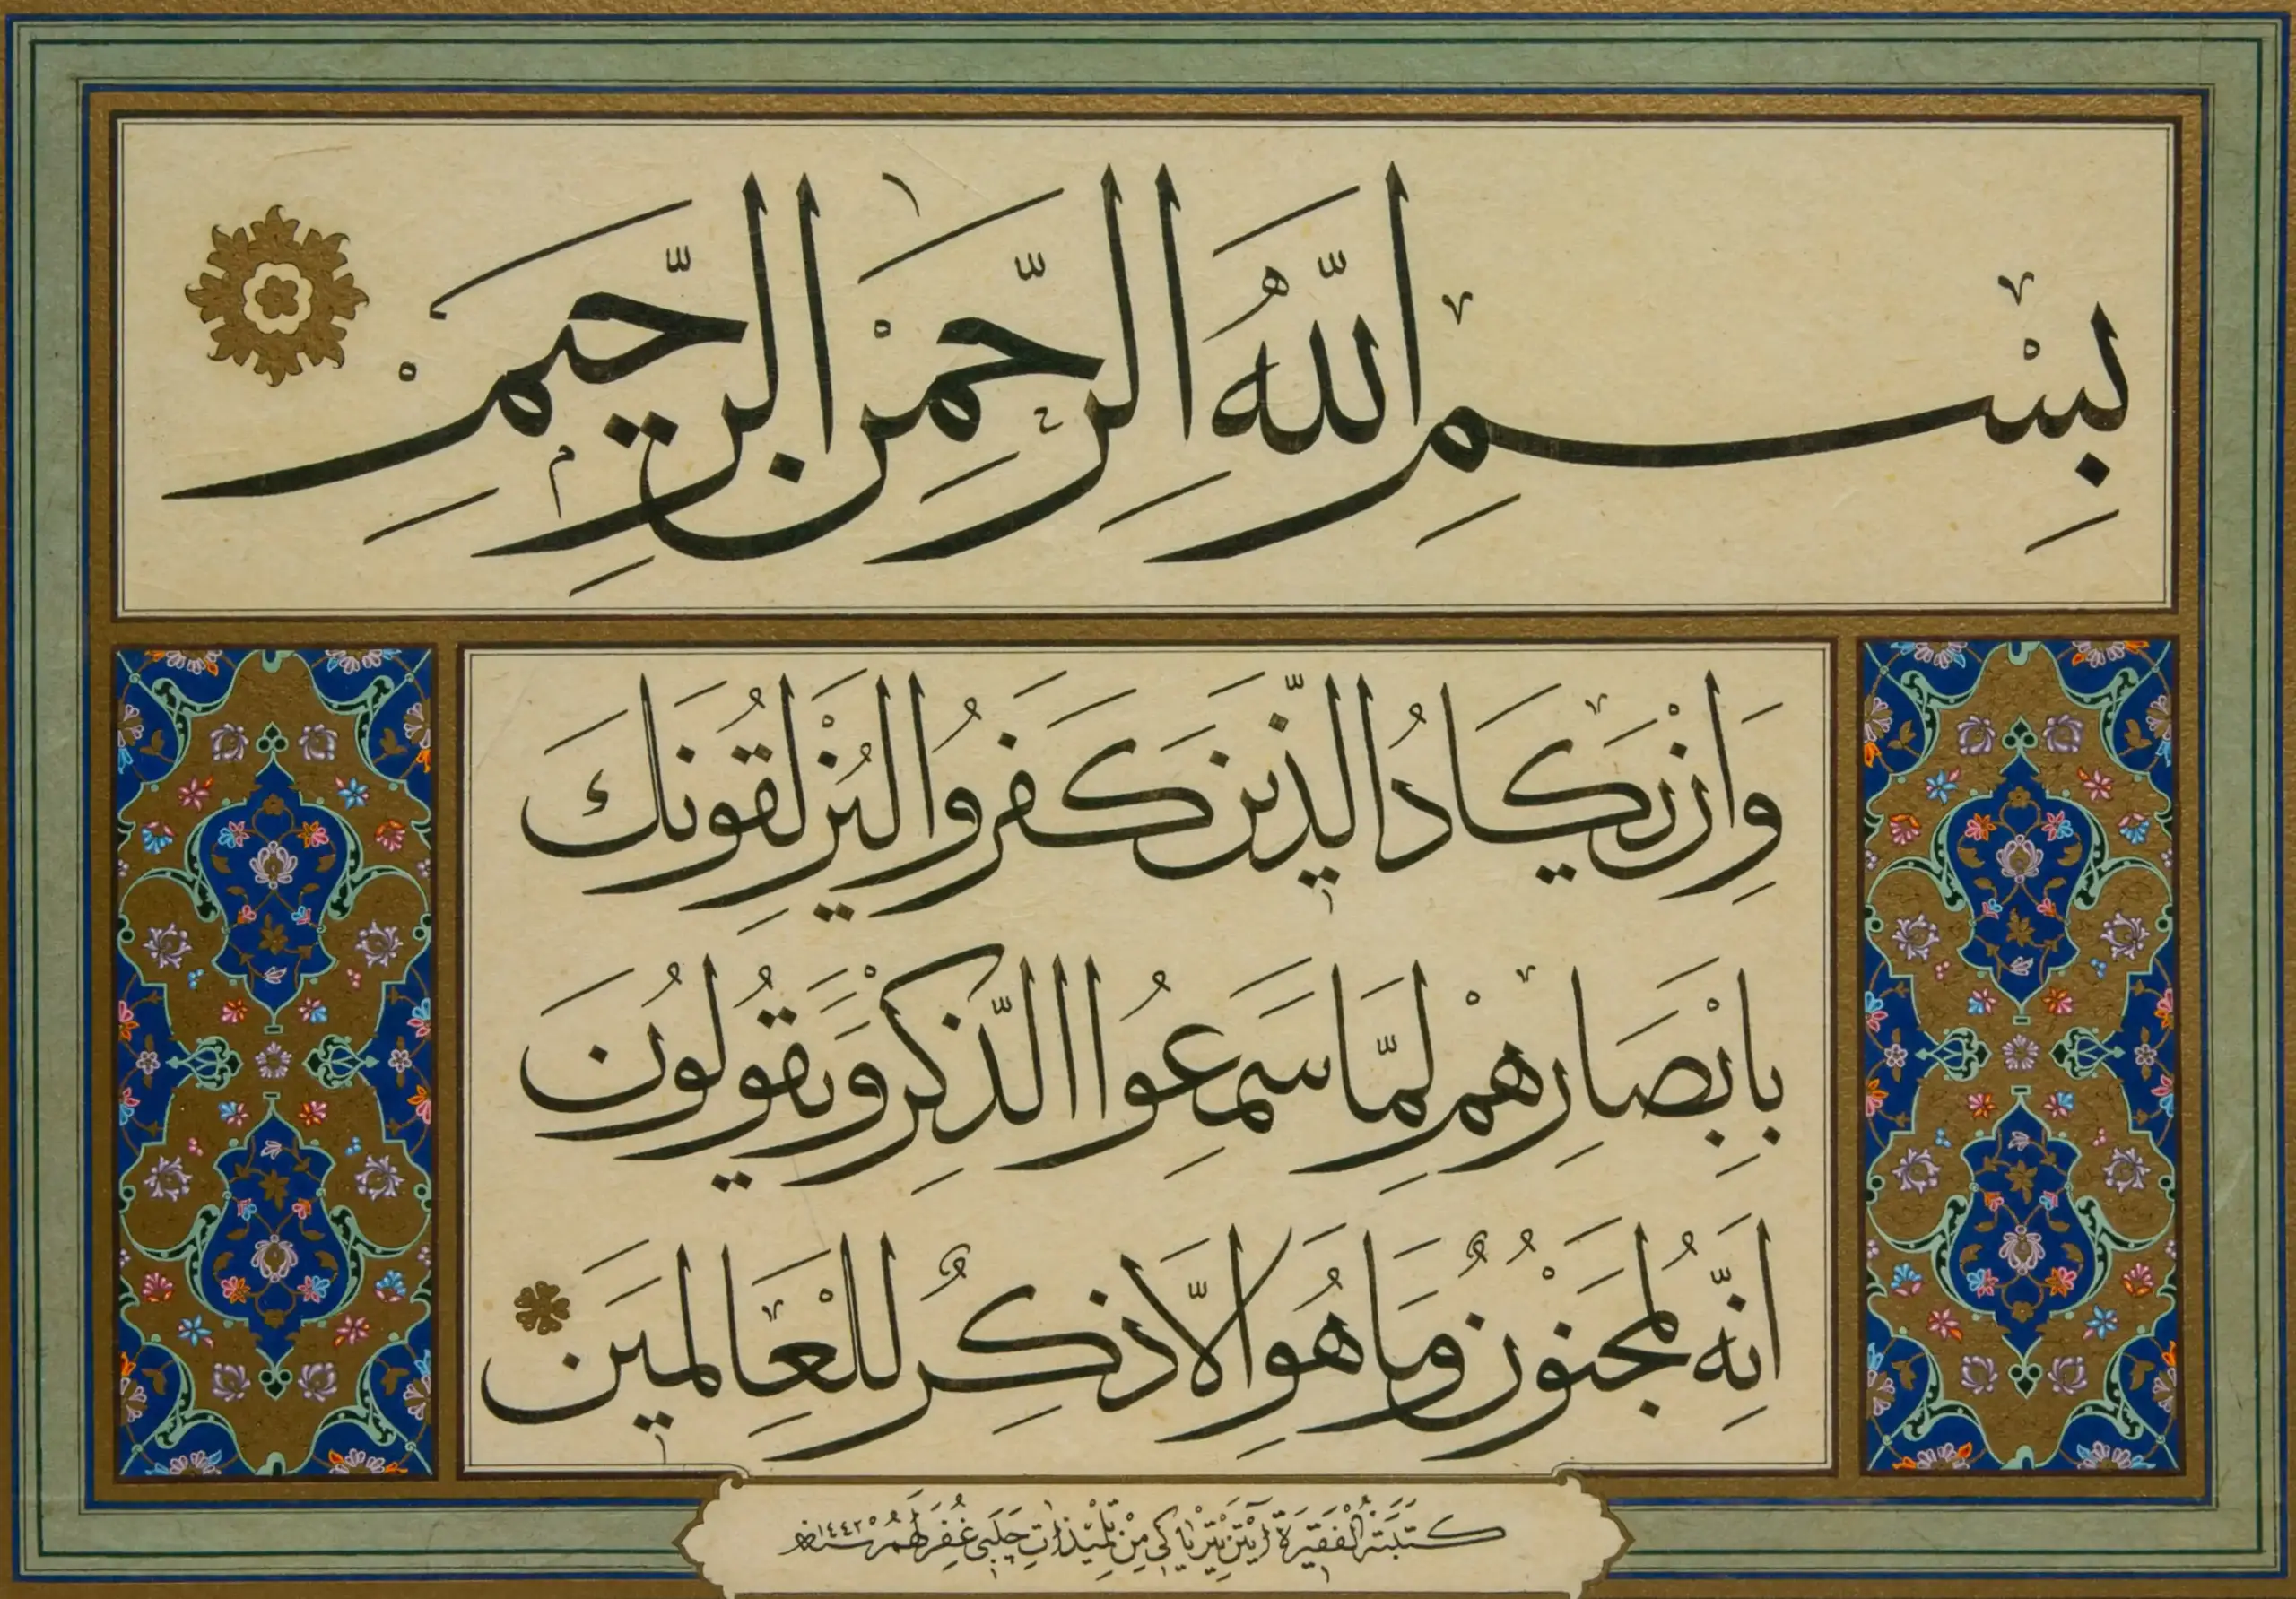 بِسْمِ اللّٰهِ الرَّحْمٰنِ الرَّحِيمِ
وَاِنْ يَكَادُ الَّذِينَ كَفَرُوا لَيُزْلِقُونَكَ
بِاَبْصَارِهِمْ لَمَّا سَمِعُوا الذِّكْرَ وَيَقُولُونَ
اِنَّهُ لَمَجْنُونٌ وَمَا هُوَ اِلَّا ذِكْرٌ لِلْعَالَمِينَ
كَتَبَتْهُ الْفَقِيرَةُ آيْتَنْ تِرْيَاكِي مِنْ تِلْمِيذَاتِ چَلَبِي غُفِرَ لَهُمْ سنة ١٤٤٢